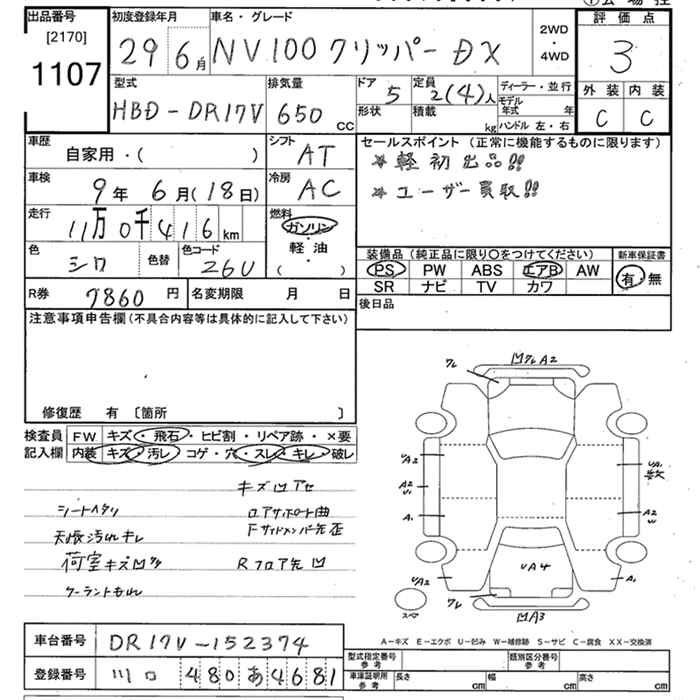 出品番号
[2170]
1107
初度登録年月
29 6月
車名・グレード
NV100クリッパー DX
2WD
・
4WD
評価点
3
外装 内装
C C
型式
HBD-DR17V
排気量
650 CC
ドア
5
形状
定員
2(4)人
積載
kg
ディーラー・並行
モデル年式 年
ハンドル 左・右
車歴
自家用・( )
シフト
AT
車検
9年 6月(18日)
冷房
AC
走行
11万0千416 km
燃料
ガソリン
・
軽油
・
( )
色
シロ
色替
色コード
26U
R券
9860 円
名変期限 月 日
セールスポイント (正常に機能するものに限ります)
★軽初出品!!
★ユーザー買取!!
装備品 (純正品に限り〇をつけてください)
PS PW ABS エアB AW
SR ナビ TV カワ
新車保証書
有・無
後日品
注意事項申告欄 (不具合内容等は具体的に記入して下さい)
修復歴 有 〔箇所 〕
検査員
記入欄
FW キズ・飛石・ヒビ割・リペア跡・×要
内装 キズ・汚レ・コゲ・穴・スレ・キレ・破レ
キズ凹アセ
シートヘタリ
ロアサポート曲
天張汚れキレ
Fサイドメンバー先歪
荷室キズ凹多
Rフロア先凹
クーラントもれ
クレ
凹クレA2
UA2
A2
A1
UA2
UA1
A2
A1
UA4
クレ
凹A3
スペア
A-キズ E-エクボ U-凹み W-補修跡 S-サビ C-腐食 XX-交換済
車台番号
DR17V-152374
登録番号
川口 480 あ 4681
型式指定番号
参考
類別区分番号
参考
車庫証明用
参考
長さ cm
幅 cm
高さ cm